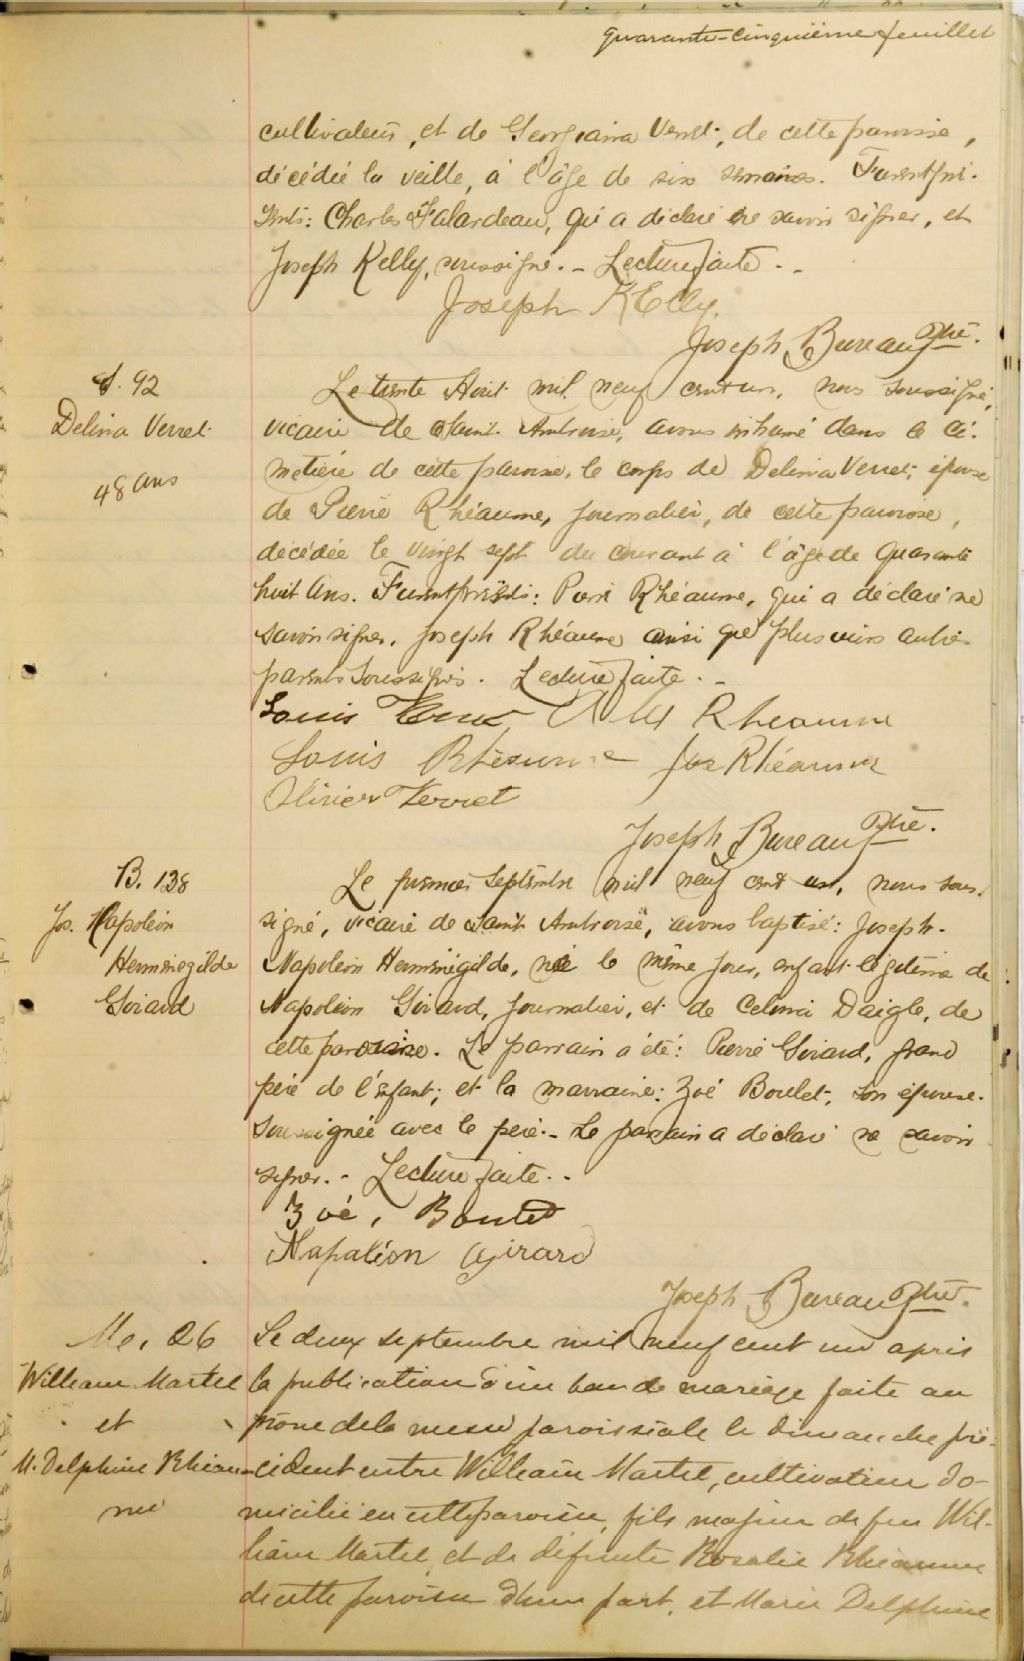 quarante-cinquième feuillet
cultivateur, et de Georgianna Verret, de cette paroisse,
décédée la veille, à l'âge de six semaines. Furent pré-
sents: Charles Falardeau, qui a déclaré ne savoir signer, et
Joseph Kelly, soussigné. - Lecture faite. -
Joseph KElly.
Joseph Bureau Ptre.
S. 92
Delina Verret
48 ans
Le trente Août mil neuf cent un, nous soussigné,
vicaire de Saint Ambroise, avons inhumé dans le ci-
metière de cette paroisse, le corps de Delina Verret, épouse
de Pierre Rhéaume, journalier, de cette paroisse,
décédée le vingt sept du courant à l'âge de quarante
huit ans. Furent présents: Pierre Rhéaume, qui a déclaré ne
savoir signer, Joseph Rhéaume ainsi que plusieurs autres
parents soussignés. Lecture faite. -
Louis Rheaume
Louis Rhéaume Jos Rhéaume
Olivier Verret
Joseph Bureau Ptre.
B. 138
Jos. Napoléon
Herménégilde
Girard
Le premier Septembre mil neuf cent un, nous sous-
signé, vicaire de Saint Ambroise, avons baptisé: Joseph-
Napoléon Herménégilde, né le même jour, enfant légitime de
Napoléon Girard, journalier, et de Celina Daigle, de
cette paroisse. Le parrain a été: Pierre Girard, grand
père de l'enfant; et la marraine: Zoé Boulet, son épouse.
Soussignée avec le père. - Le parrain a déclaré ne savoir
signer. - Lecture faite. -
Zoé, Boulet
Napaléon Girard
Joseph Bureau Ptre.
M. 26
William Martel
et
M. Delphine Rhéau-
me
Le deux septembre mil neuf cent un après
la publication d'un ban de mariage faite au
prône de la messe paroissiale le dimanche pré-
cédent entre William Martel, cultivateur do-
micilié en cette paroisse, fils majeur de feu Wil-
liam Martel et de défunte Rosalie Rhéaume
de cette paroisse d'une part, et Marie Delphine